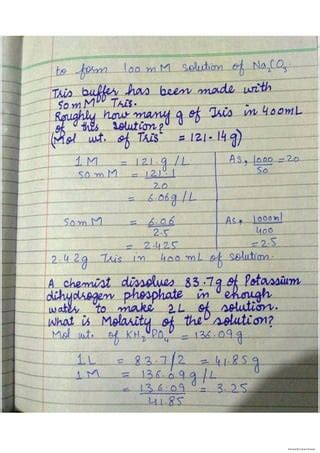 to form 100 mM solution of Na2CO3.
Tris buffer has been made with
50mM Tris.
Roughly how many g of Tris in 400mL
of this solution?
(Mol wt. of Tris = 121.14g)
1M = 121.g/L As, 1000/50 = 20
50mM = 121.1/20
= 6.06g/L
50mM = 6.06/2.5 As, 1000ml/400
= 2.425 = 2.5
2.42g Tris in 400 mL of solution.
A chemist dissolves 83.7g of Potassium
dihydrogen phosphate in enough
water to make 2L of solution.
What is Molarity of the solution?
Mol wt. of KH2PO4 = 136.09g
1L = 83.7/2 = 41.85g
1M = 136.09g/L
= 136.09/41.85 = 3.25